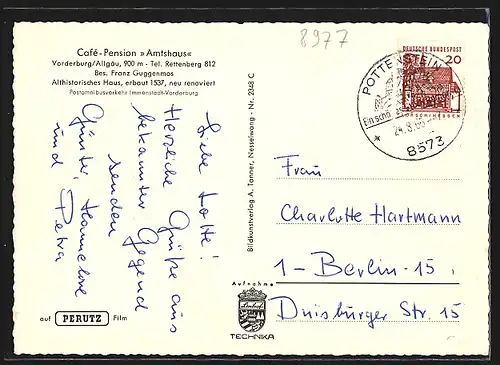 8977
Café-Pension »Amtshaus«
Vorderburg/Allgäu, 900 m - Tel. Rettenberg 812
Bes. Franz Guggenmos
Althistorisches Haus, erbaut 1537, neu renoviert
Postomnibusverkehr Immenstadt-Vorderburg
Liebe Lotte!
Herzliche Grüße aus
bekannter Gegend
senden
Günter, Hannelore
und Petra
auf PERUTZ Film
Bildkunstverlag A. Tanner, Nesselwang - Nr. 2348 C
Aufnahme
TECHNIKA
DEUTSCHE BUNDESPOST
20
POTTENSTEIN
8573
Frau
Charlotte Hartmann
1-Berlin-15
Duisburger Str. 15